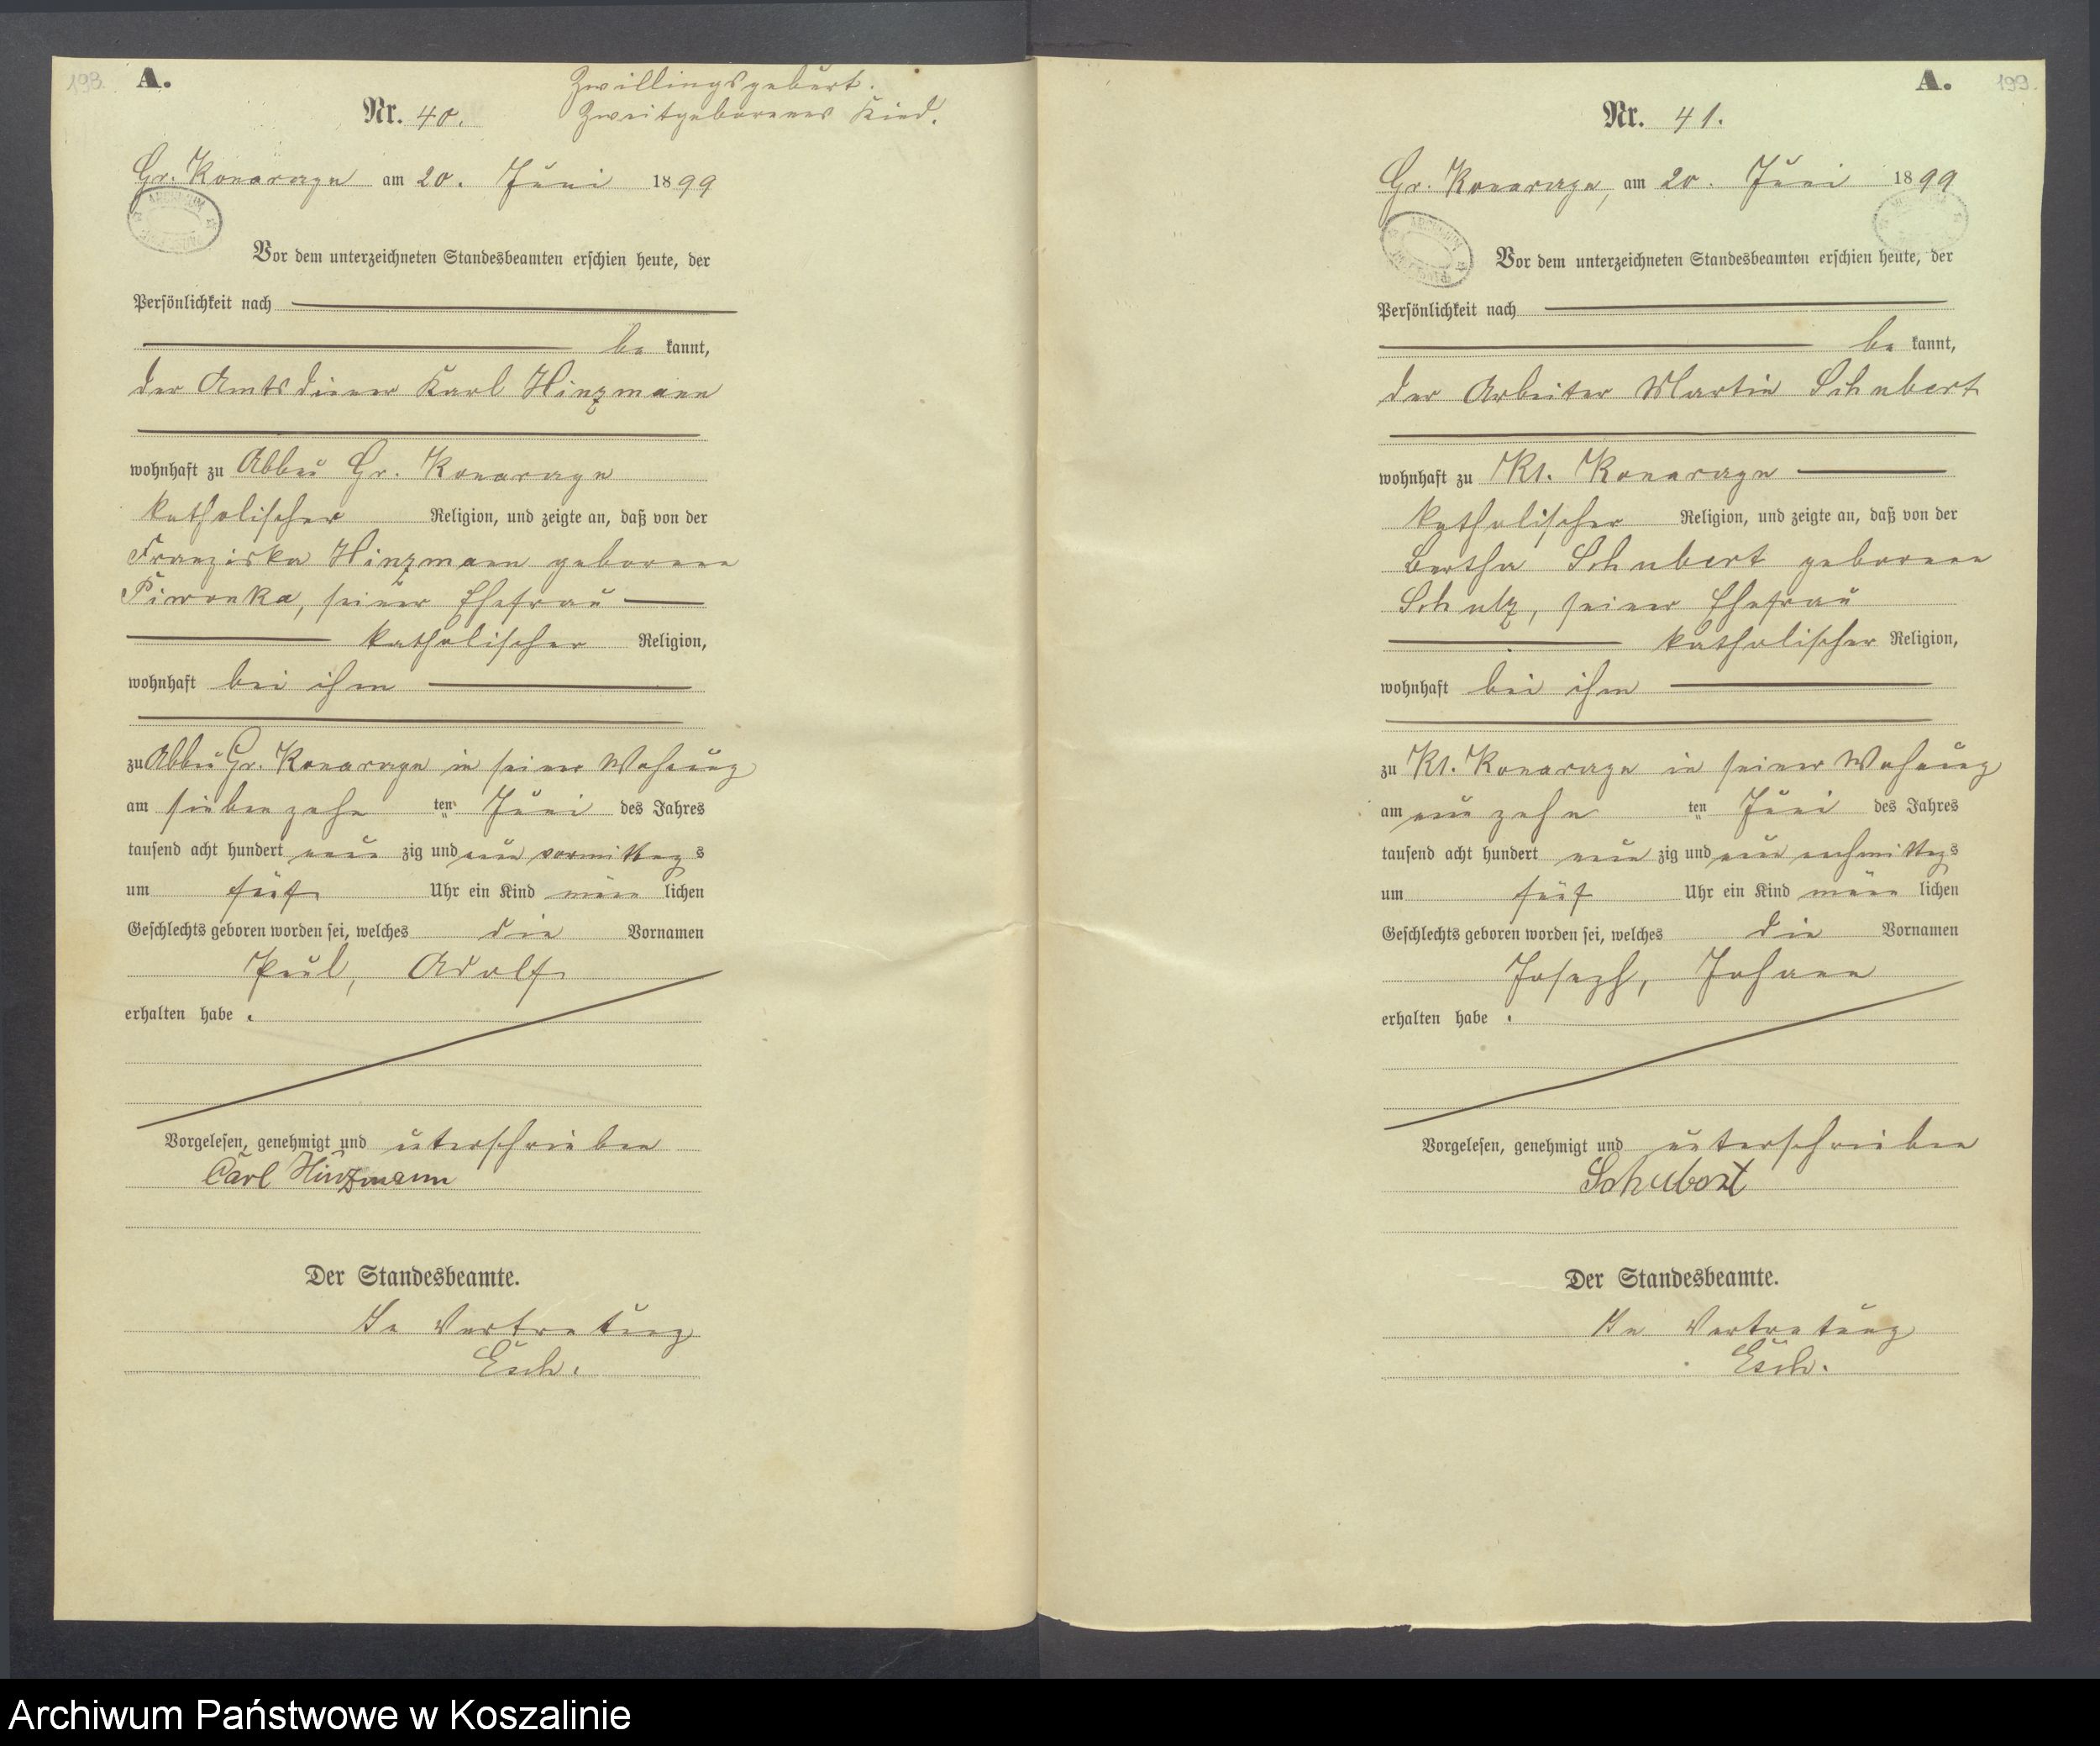 198.
A.
Zwillingsgeburt.
Nr. 40.
Zweitgeborenes Kind.
Gr. Konarczyn am 20. Juni 1899
ARCHIWUM
Vor dem unterzeichneten Standesbeamten erschien heute, der
Persönlichkeit nach
be kannt,
der Amtsdiener Karl Hinzmann
wohnhaft zu Abbau Gr. Konarczyn
katholischer Religion, und zeigte an, daß von der
Franziska Hinzmann geborene
Piwonka, seiner Ehefrau
katholischer Religion,
wohnhaft bei ihm
zu Abbau Gr. Konarczyn in seiner Wohnung
am siebenzehn ten Juni des Jahres
tausend acht hundert neun zig und neun vormittag s
um fünf Uhr ein Kind männ lichen
Geschlechts geboren worden sei, welches die Vornamen
Paul, Adolf
erhalten habe .
Vorgelesen, genehmigt und unterschrieben
Carl Hinzmann
Der Standesbeamte.
In Vertretung
Esch.
A.
199.
Nr. 41.
Gr. Konarczyn, am 20. Juni 1899
ARCHIWUM
Vor dem unterzeichneten Standesbeamten erschien heute, der
Persönlichkeit nach
be kannt,
der Arbeiter Martin Schubert
wohnhaft zu Kl. Konarczyn
katholischer Religion, und zeigte an, daß von der
Bertha Schubert geborene
Schulz, seiner Ehefrau
katholischer Religion,
wohnhaft bei ihm
zu Kl. Konarczyn in seiner Wohnung
am neunzehn ten Juni des Jahres
tausend acht hundert neun zig und neun nachmittags
um fünf Uhr ein Kind männ lichen
Geschlechts geboren worden sei, welches die Vornamen
Joseph, Johann
erhalten habe .
Vorgelesen, genehmigt und unterschrieben
Schubert
Der Standesbeamte.
In Vertretung
Esch.
Archiwum Państwowe w Koszalinie